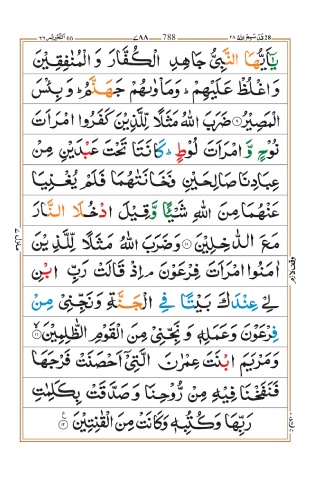 قد سمع الله ٢٨ 28 788 ٧٨٨ التحريم ٦٦ 66
يٰۤاَيُّهَا النَّبِيُّ جَاهِدِ الْكُفَّارَ وَ الْمُنٰفِقِيْنَ
وَاغْلُظْ عَلَيْهِمْ ؕ وَمَاْوٰىهُمْ جَهَنَّمُ ؕ وَ بِئْسَ
الْمَصِيْرُ ۹ ضَرَبَ اللّٰهُ مَثَلًا لِّلَّذِيْنَ كَفَرُوا امْرَاَتَ
نُوْحٍ وَّ امْرَاَتَ لُوْطٍ ؕ كَانَتَا تَحْتَ عَبْدَيْنِ مِنْ
عِبَادِنَا صَالِحَيْنِ فَخَانَتٰهُمَا فَلَمْ يُغْنِيَا
عَنْهُمَا مِنَ اللّٰهِ شَيْـًٔا وَّ قِيْلَ ادْخُلَا النَّارَ
مَعَ الدّٰخِلِيْنَ ۱۰ وَضَرَبَ اللّٰهُ مَثَلًا لِّلَّذِيْنَ
اٰمَنُوا امْرَاَتَ فِرْعَوْنَ ۘ اِذْ قَالَتْ رَبِّ ابْنِ
لِيْ عِنْدَكَ بَيْتًا فِي الْجَنَّةِ وَ نَجِّنِيْ مِنْ
فِرْعَوْنَ وَعَمَلِهٖ وَ نَجِّنِيْ مِنَ الْقَوْمِ الظّٰلِمِيْنَ ۱۱
وَ مَرْيَمَ ابْنَتَ عِمْرٰنَ الَّتِيْۤ اَحْصَنَتْ فَرْجَهَا
فَنَفَخْنَا فِيْهِ مِنْ رُّوْحِنَا وَ صَدَّقَتْ بِكَلِمٰتِ
رَبِّهَا وَ كُتُبِهٖ وَكَانَتْ مِنَ الْقٰنِتِيْنَ ۱۲